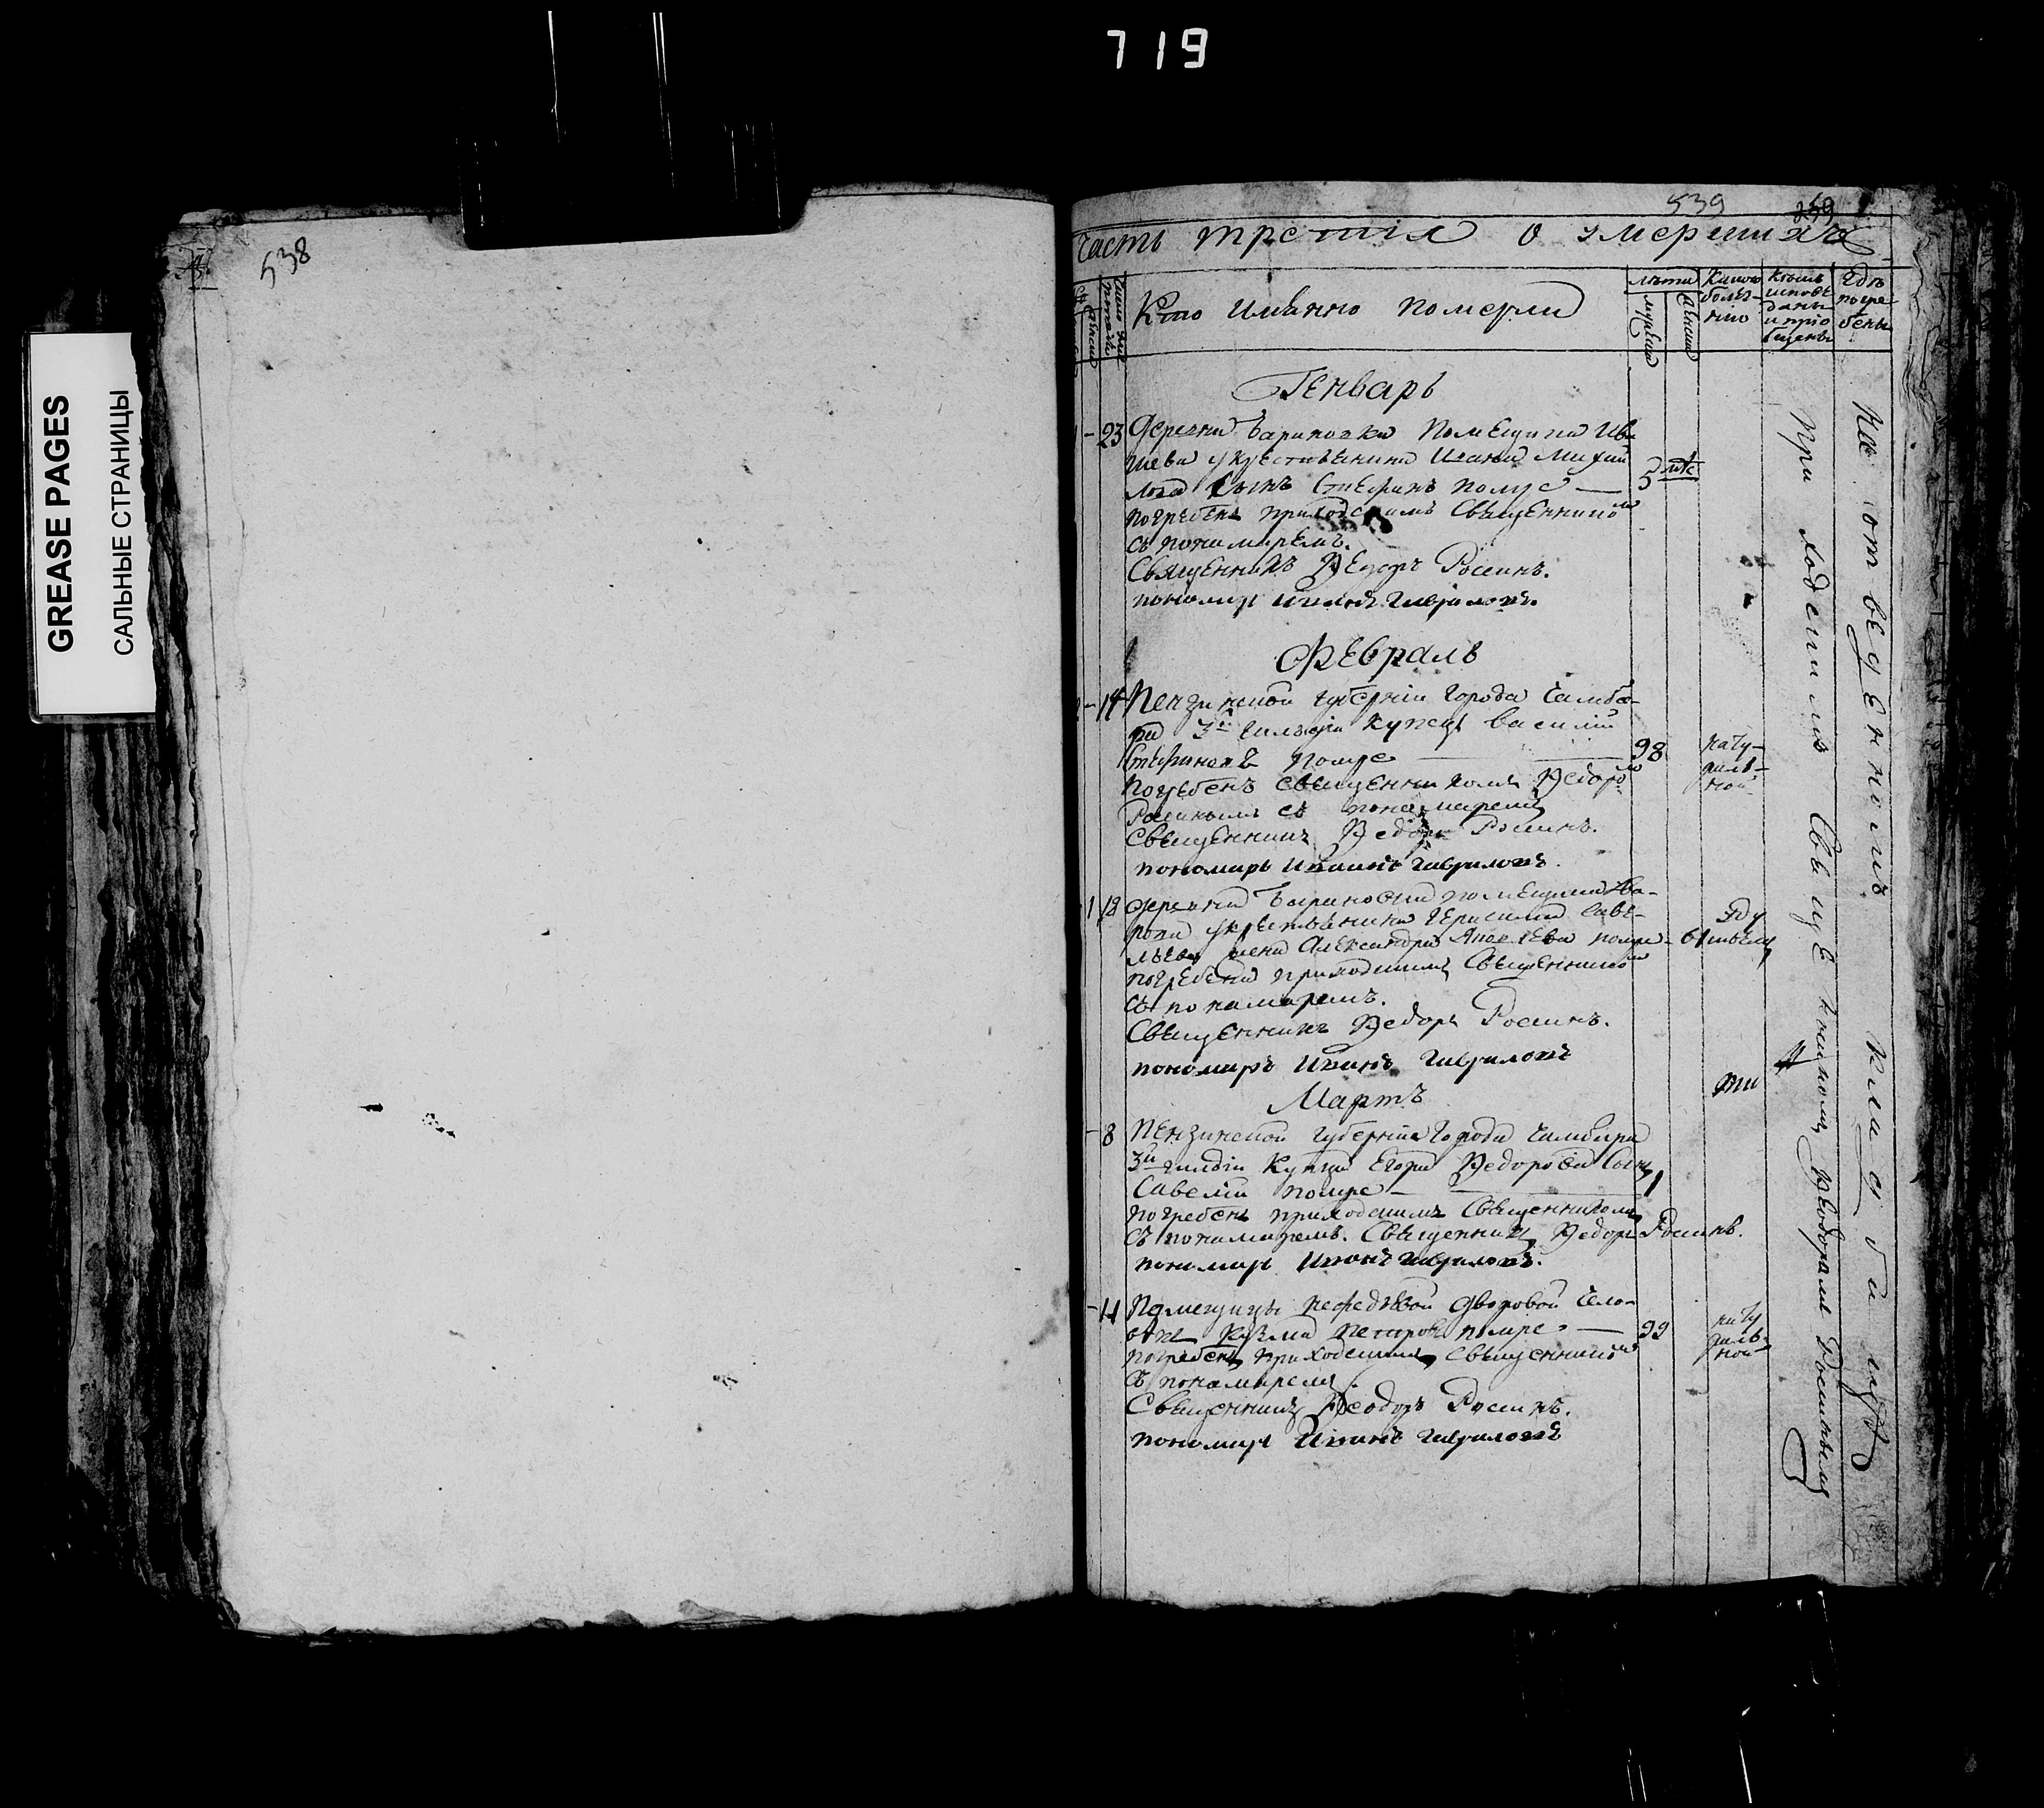 719
GREASE PAGES
САЛЬНЫЕ СТРАНИЦЫ
538
539
Часть третiя о умершихъ
Кто имянно померли
лѣта
мужеска
женска
Какою болѣзнию
Кѣмъ исповѣданы и приобщены
Гдѣ погребены
Генварь
1 - 23 Деревни Бариновки Помещика
крестьянина Ивана Михай
лова сынъ Стефанъ помре — 5 мѣс
погребенъ приходскимъ Священникомъ
съ пономаремъ.
Священникъ Ѳедоръ Росинъ.
пономарь Иванъ Гавриловъ.
Февраль
- 14 Пензинской губернiи города Чемба-
ра 3й гильдiи купецъ Василiй
Стефановъ помре — 98 натуральной
погребенъ священникомъ Ѳедоромъ
Росинымъ съ пономаремъ
Священникъ Ѳедоръ Росинъ.
пономарь Иванъ Гавриловъ.
1 18 деревни Бариновки помещика
крестьянина Герасима Саве-
льева жена Александра помре - 61
погребена приходскимъ Священникомъ
съ пономаремъ.
Священникъ Ѳедоръ Росинъ.
пономарь Иванъ Гавриловъ
Мартъ
- 8 Пензинской губернiи города Чембара
3й гильдiи Купца Егора Ѳедорова сынъ
Савелiй помре — 1
погребенъ приходскимъ Священникомъ
съ пономаремъ. Священникъ Ѳедоръ Росинъ.
пономарь Иванъ Гавриловъ.
- 11 Помещицы дворовой чело-
векъ Козма Петровъ помре — 99 натуральной
погребенъ приходскимъ Священникомъ
съ пономаремъ.
Священникъ Ѳеодоръ Росинъ.
пономарь Иванъ Гавриловъ
При ходскимъ Священникомъ Ѳеодоромъ Росинымъ
На отведенномъ кладбищѣ